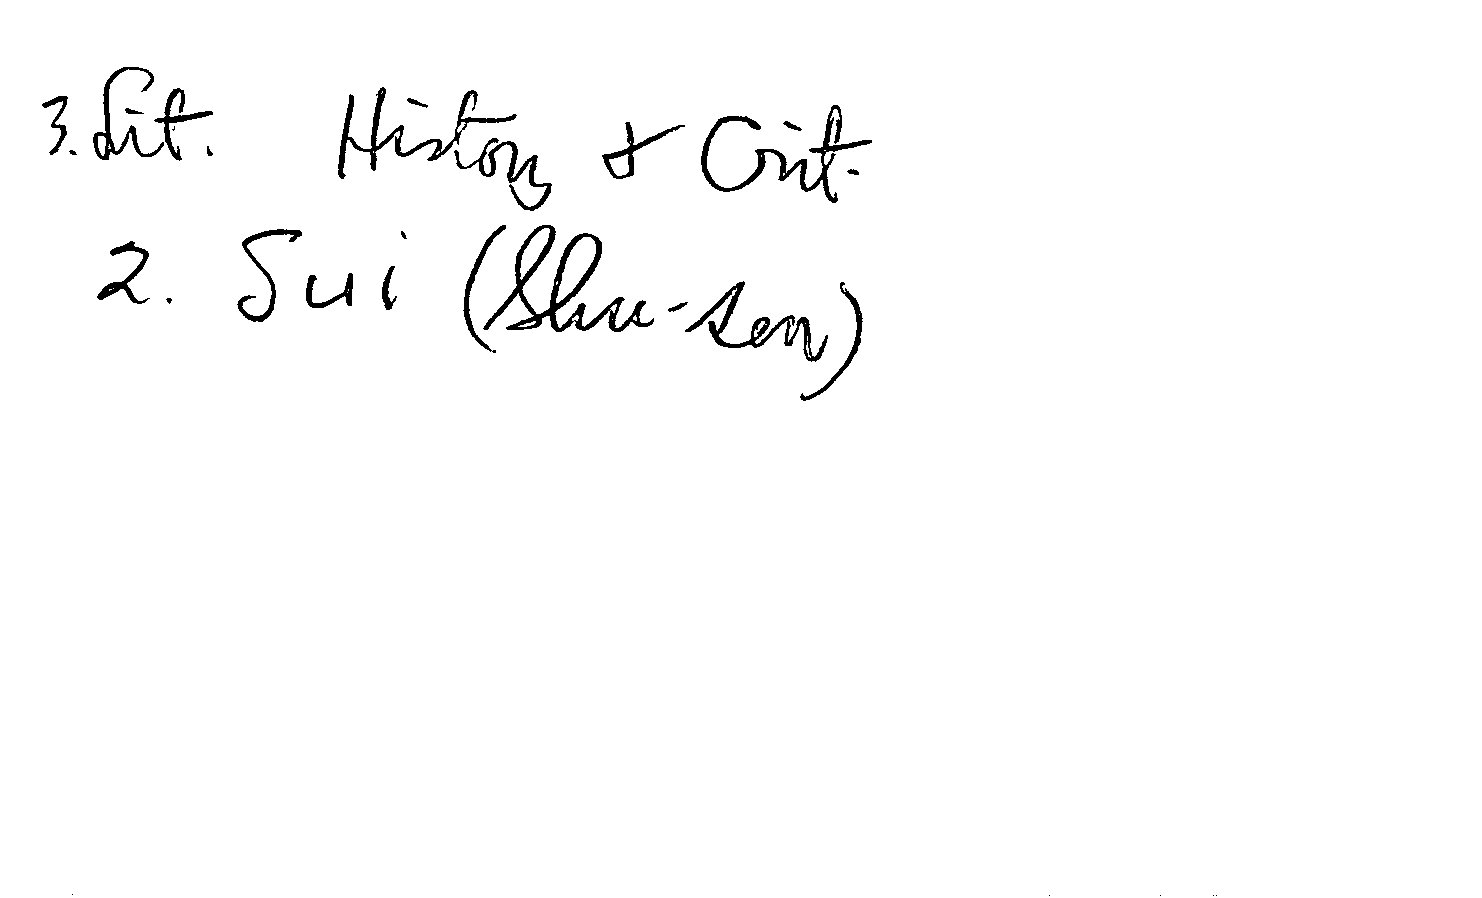 3. Lit. History & Crit.
2. Sui (Shu-sen)